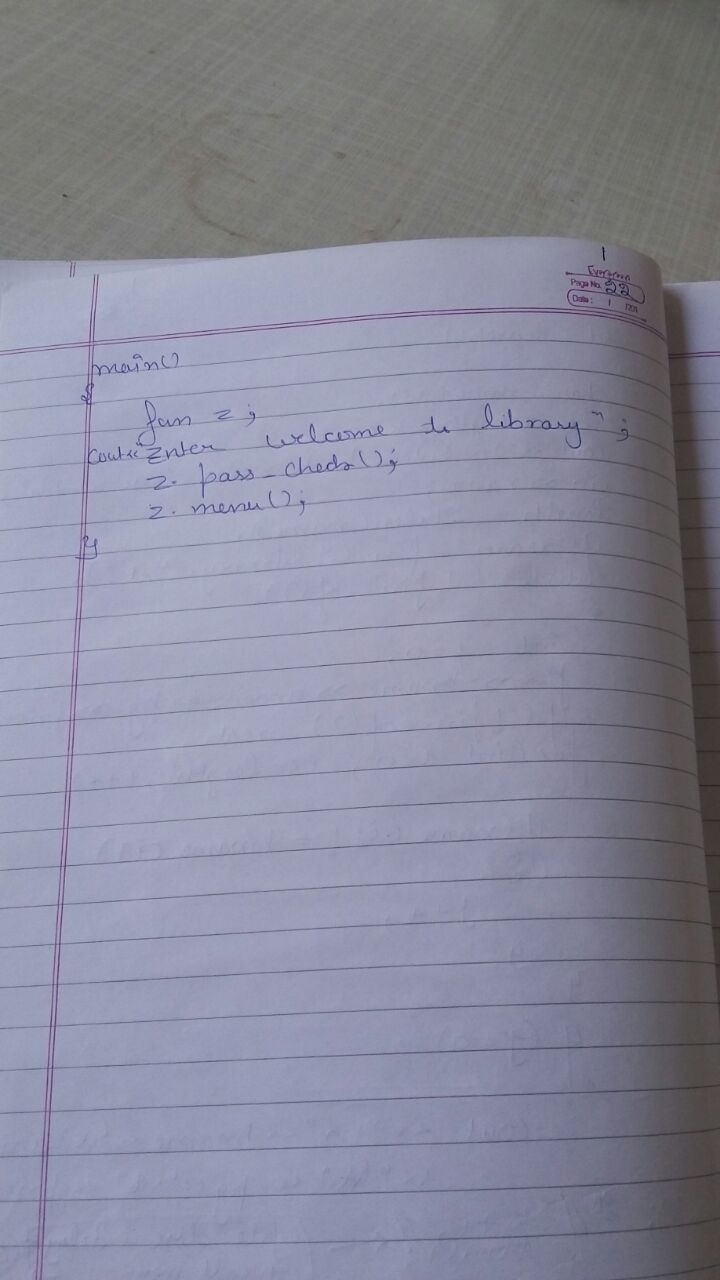 Evergreen
Page No. 22
Date : / /201
main()
{
fun z;
cout<<"Enter welcome to library";
z. pass_check();
z. menu();
}